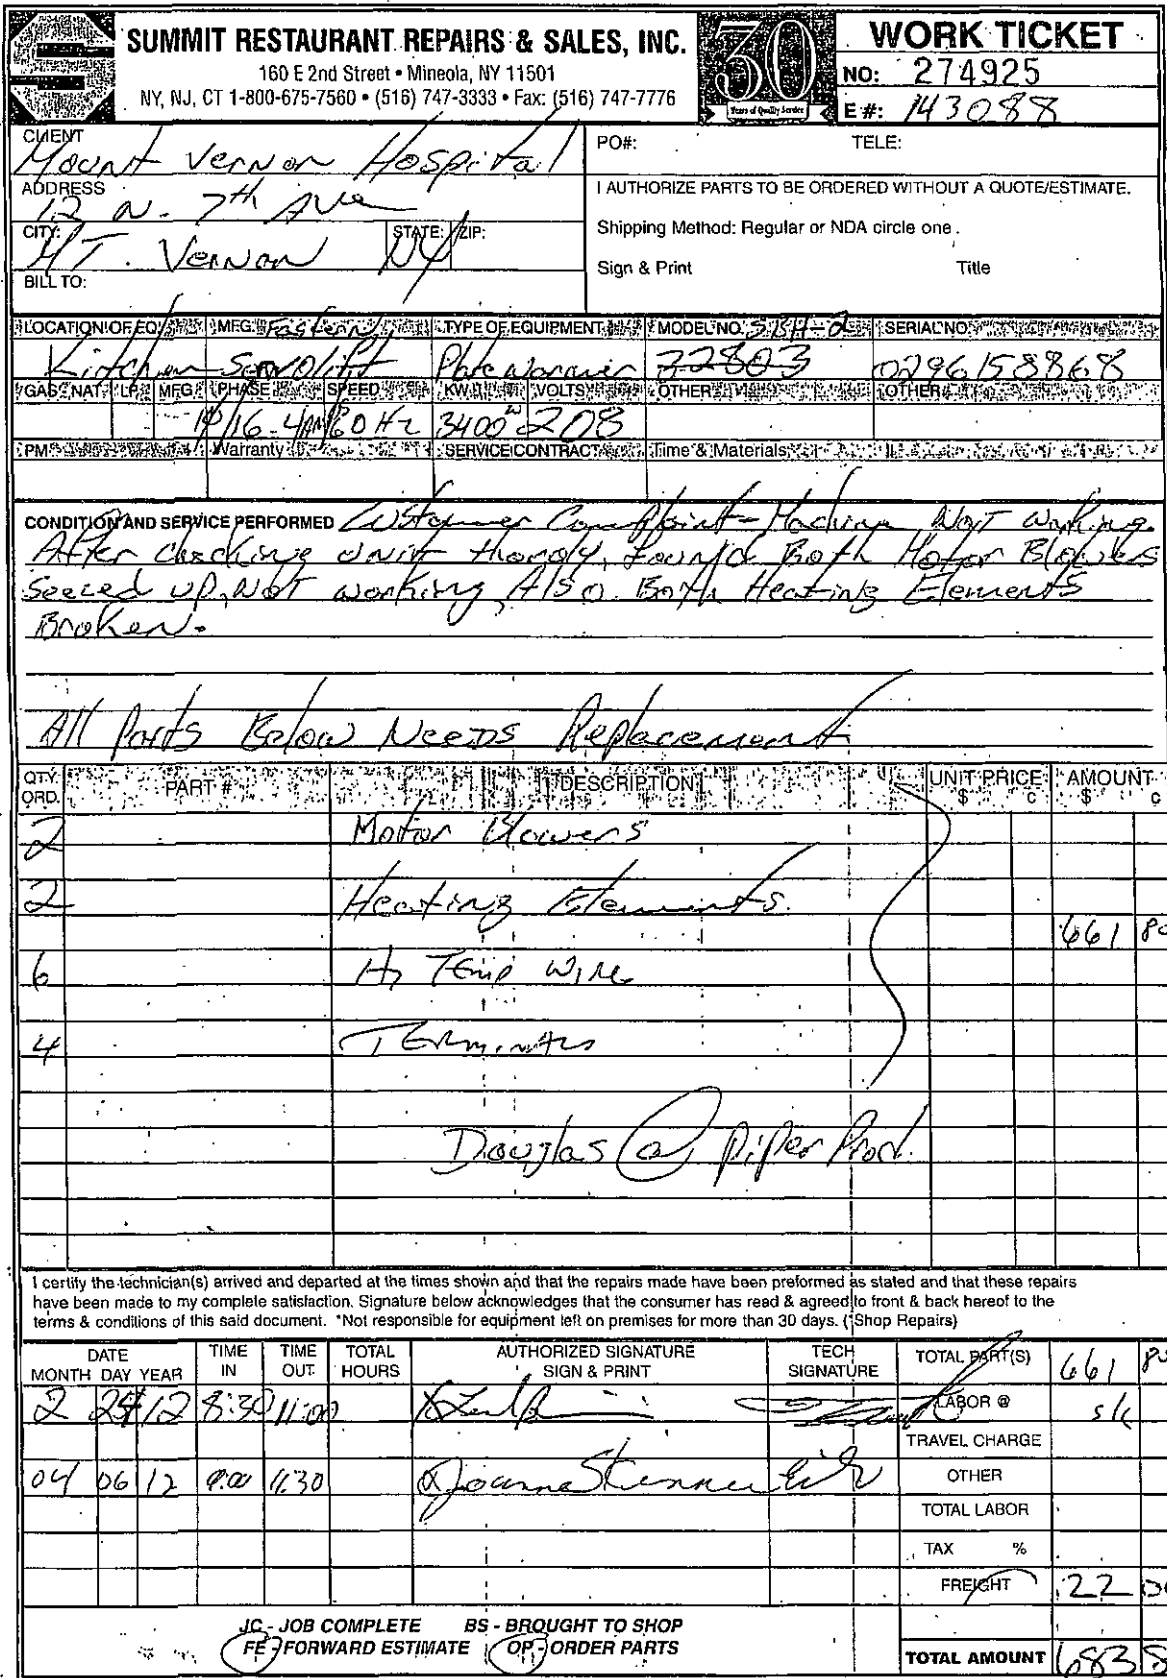 SUMMIT RESTAURANT REPAIRS & SALES, INC.
160 E 2nd Street • Mineola, NY 11501
NY, NJ, CT 1-800-675-7560 • (516) 747-3333 • Fax: (516) 747-7776
30
Years of Quality Service
WORK TICKET
NO: 274925
E #: 143088
CLIENT
Mount Vernon Hospital
ADDRESS
12 N. 7th Ave
CITY: MT. Vernon STATE: NY ZIP:
BILL TO:
PO#: TELE:
I AUTHORIZE PARTS TO BE ORDERED WITHOUT A QUOTE/ESTIMATE.
Shipping Method: Regular or NDA circle one.
Sign & Print Title
LOCATION OF EQ. MFG. Eastern TYPE OF EQUIPMENT MODEL NO. SBH-2 SERIAL NO.
Kirtchen Servolift Platewarmer 22803 0296158868
GAS: NAT. LP. MFG. PHASE SPEED KW VOLTS OTHER OTHER
16.4AM 60 Hz 3400 W 208
PM Warranty SERVICE CONTRACT Time & Materials
CONDITION AND SERVICE PERFORMED Customer Complaint - Machine Not working.
After checking unit thorgly, Found Both Motor Blowers
Seeced up, NOT working, Also Both Heating Elements
Broken.
All Parts Below Needs Replacement
QTY. ORD. PART # DESCRIPTION UNIT PRICE $ c AMOUNT $ c
2 Motor Blowers
2 Heating Elements.
661 80
6 Hi Temp Wire
4 Terminals
Douglas @ Piper Prod.
I certify the technician(s) arrived and departed at the times shown and that the repairs made have been preformed as stated and that these repairs
have been made to my complete satisfaction. Signature below acknowledges that the consumer has read & agreed to front & back hereof to the
terms & conditions of this said document. *Not responsible for equipment left on premises for more than 30 days. (*Shop Repairs)
DATE MONTH DAY YEAR TIME IN TIME OUT TOTAL HOURS AUTHORIZED SIGNATURE SIGN & PRINT TECH SIGNATURE TOTAL PART(S) 661 80
2 24 12 8:30 11:00 LABOR @ s/c
TRAVEL CHARGE
04 06 12 9:00 11:30 Joanne OTHER
TOTAL LABOR
TAX %
FREIGHT 22
JC - JOB COMPLETE BS - BROUGHT TO SHOP
FE - FORWARD ESTIMATE OP - ORDER PARTS
TOTAL AMOUNT 683 8